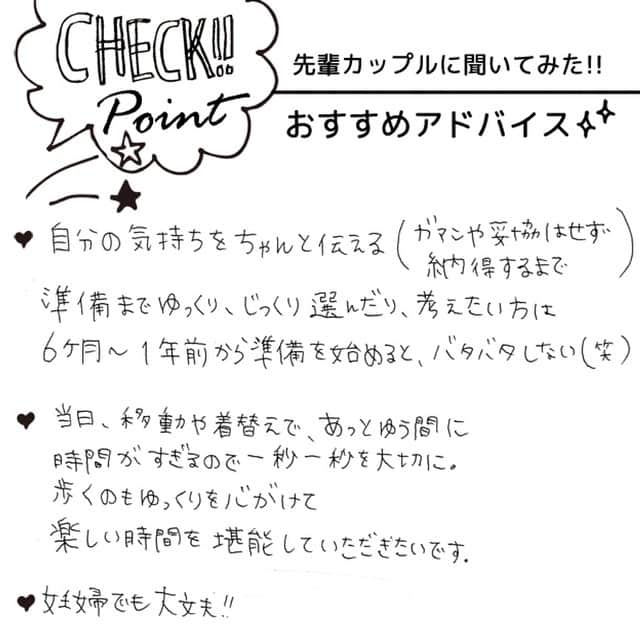 CHECK!!
Point
先輩カップルに聞いてみた!!
おすすめアドバイス
♥ 自分の気持ちをちゃんと伝える(ガマンや妥協はせず
納得するまで)
準備までゆっくり、じっくり選んだり、考えたい方は
6ヶ月〜1年前から準備を始めると、バタバタしない(笑)
♥ 当日、移動や着替えで、あっとゆう間に
時間がすぎるので一秒一秒を大切に。
歩くのもゆっくりを心がけて
楽しい時間を堪能していただきたいです。
♥妊婦でも大丈夫!!